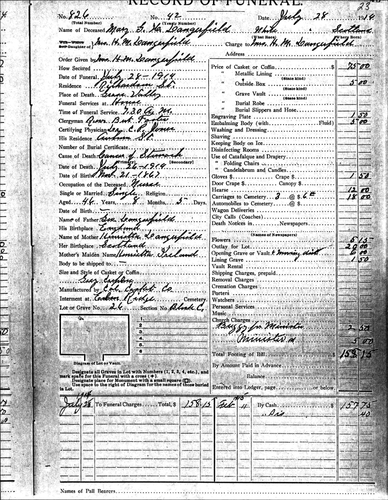 RECORD OF FUNERAL.
23
No. 824 No. 42 Date July 28 1914
(Total Number) (Yearly Number)
Name of Deceased Mary E. H. Dangerfield White
Mrs. H. M. Dangerfield Charge to Mrs. H. M. Dangerfield
Order Given by Mrs. H. M. Dangerfield
How Secured
Date of Funeral July 28 - 1914
Residence Richardson St.
Place of Death Grass Valley
Funeral Services at Home
Time of Funeral Service 7.30 A.M.
Clergyman Rev. Burt Foster
Certifying Physician C. W. Jones
His Residence Auburn St.
Number of Burial Certificate
Cause of Death Cancer of Stomach
(Secondary)
Date of Death July 26 - 1914
Date of Birth Nov. 21 - 1867
Occupation of the Deceased Nurse
Single or Married Single Religion
Aged 46 Years 8 Months 5 Days
Date of Birth
Name of Father Geo. Dangerfield
His Birthplace England
Name of Mother Henrietta Dangerfield
Her Birthplace Scotland
Mother's Maiden Name Henrietta Ireland
Body to be shipped to
Size and Style of Casket or Coffin
Manufactured by Cal. Casket Co.
Interment at Cemetery
Lot or Grave No. 26 Section Block C
1
2
3
4
Diagram of Lot or Vault
Designate all Graves in Lot with Numbers (1, 2, 3, 4, etc.) and
mark space for this Funeral with a cross
Designate place for Monument with a small square
Use space to the right of Diagram for names of those buried
in Lot.
Price of Casket or Coffin 75.00
" Metallic Lining
(State kind)
" Outside Box 5.00
(State kind)
" Grave Vault
(State kind)
" Burial Robe
" Burial Slippers and Hose
Engraving Plate 1.50
Embalming Body (with Fluid) 5.00
Washing and Dressing
Shaving
Keeping Body on Ice
Disinfecting Rooms
Use of Catafalque and Drapery
" Folding Chairs
" Candelabrum and Candles
Gloves $ Crape $ 1.50
Door Crape $
Hearse 12.00
Carriages to Cemetery 3 @ $6 18.00
Automobiles to Cemetery @ $
Wagon Deliveries
City Calls (Coaches)
Death Notices in Newspapers
(Names of Newspapers)
Flowers
Outlay for Lot 20.00
Opening Grave or Vault
Lining Grave 1.50
Vault Rental
Shipping Charges, prepaid
Removal Charges
Cremation Charges
Porters
Watchers
Personal Services
Music
Church Charges
Buggy for Minister 2.50
Minister 5.00
Total Footing of Bill 158.15
By Amount Paid in Advance
Balance
Entered into Ledger, page or below.
July 28 To Funeral Charges Total, $ 158 15 By Cash 157 75
Dis 40
Names of Pall Bearers